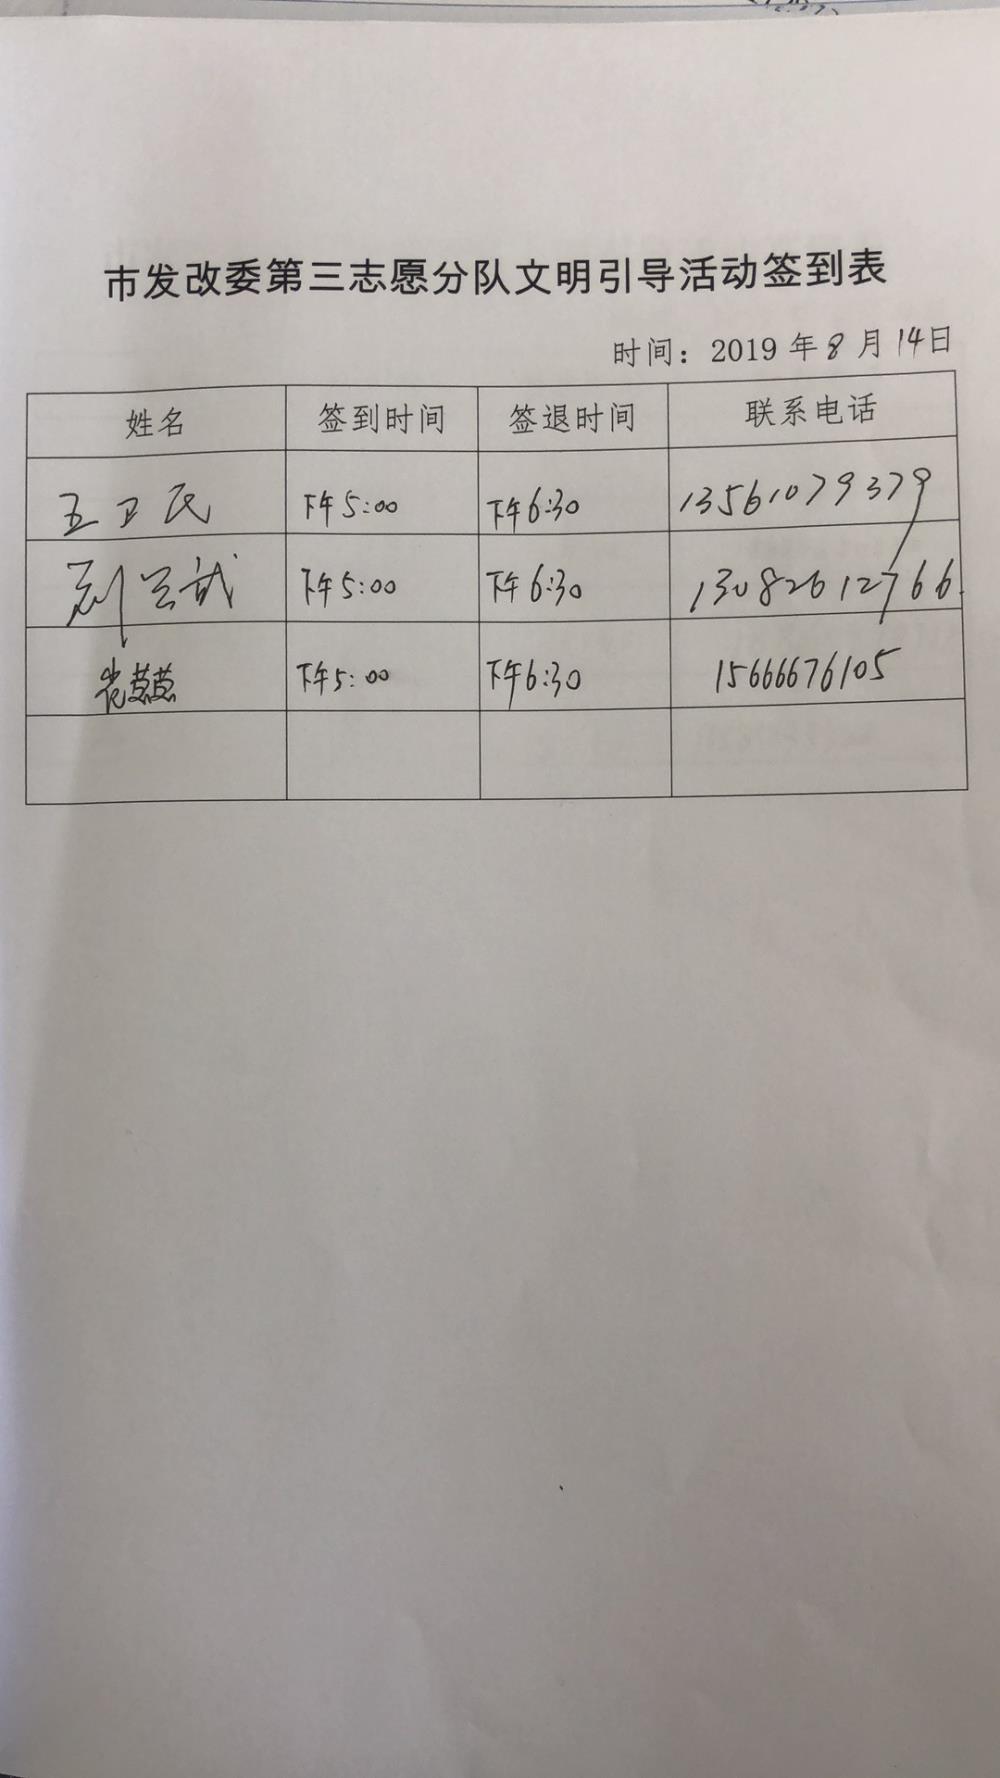 市发改委第三志愿分队文明引导活动签到表
时间：2019 年 8 月 14日
姓名 签到时间 签退时间 联系电话
王卫民 下午5:00 下午6:30 13561079379
下午5:00 下午6:30 13082612766
下午5:00 下午6:30 15666676105